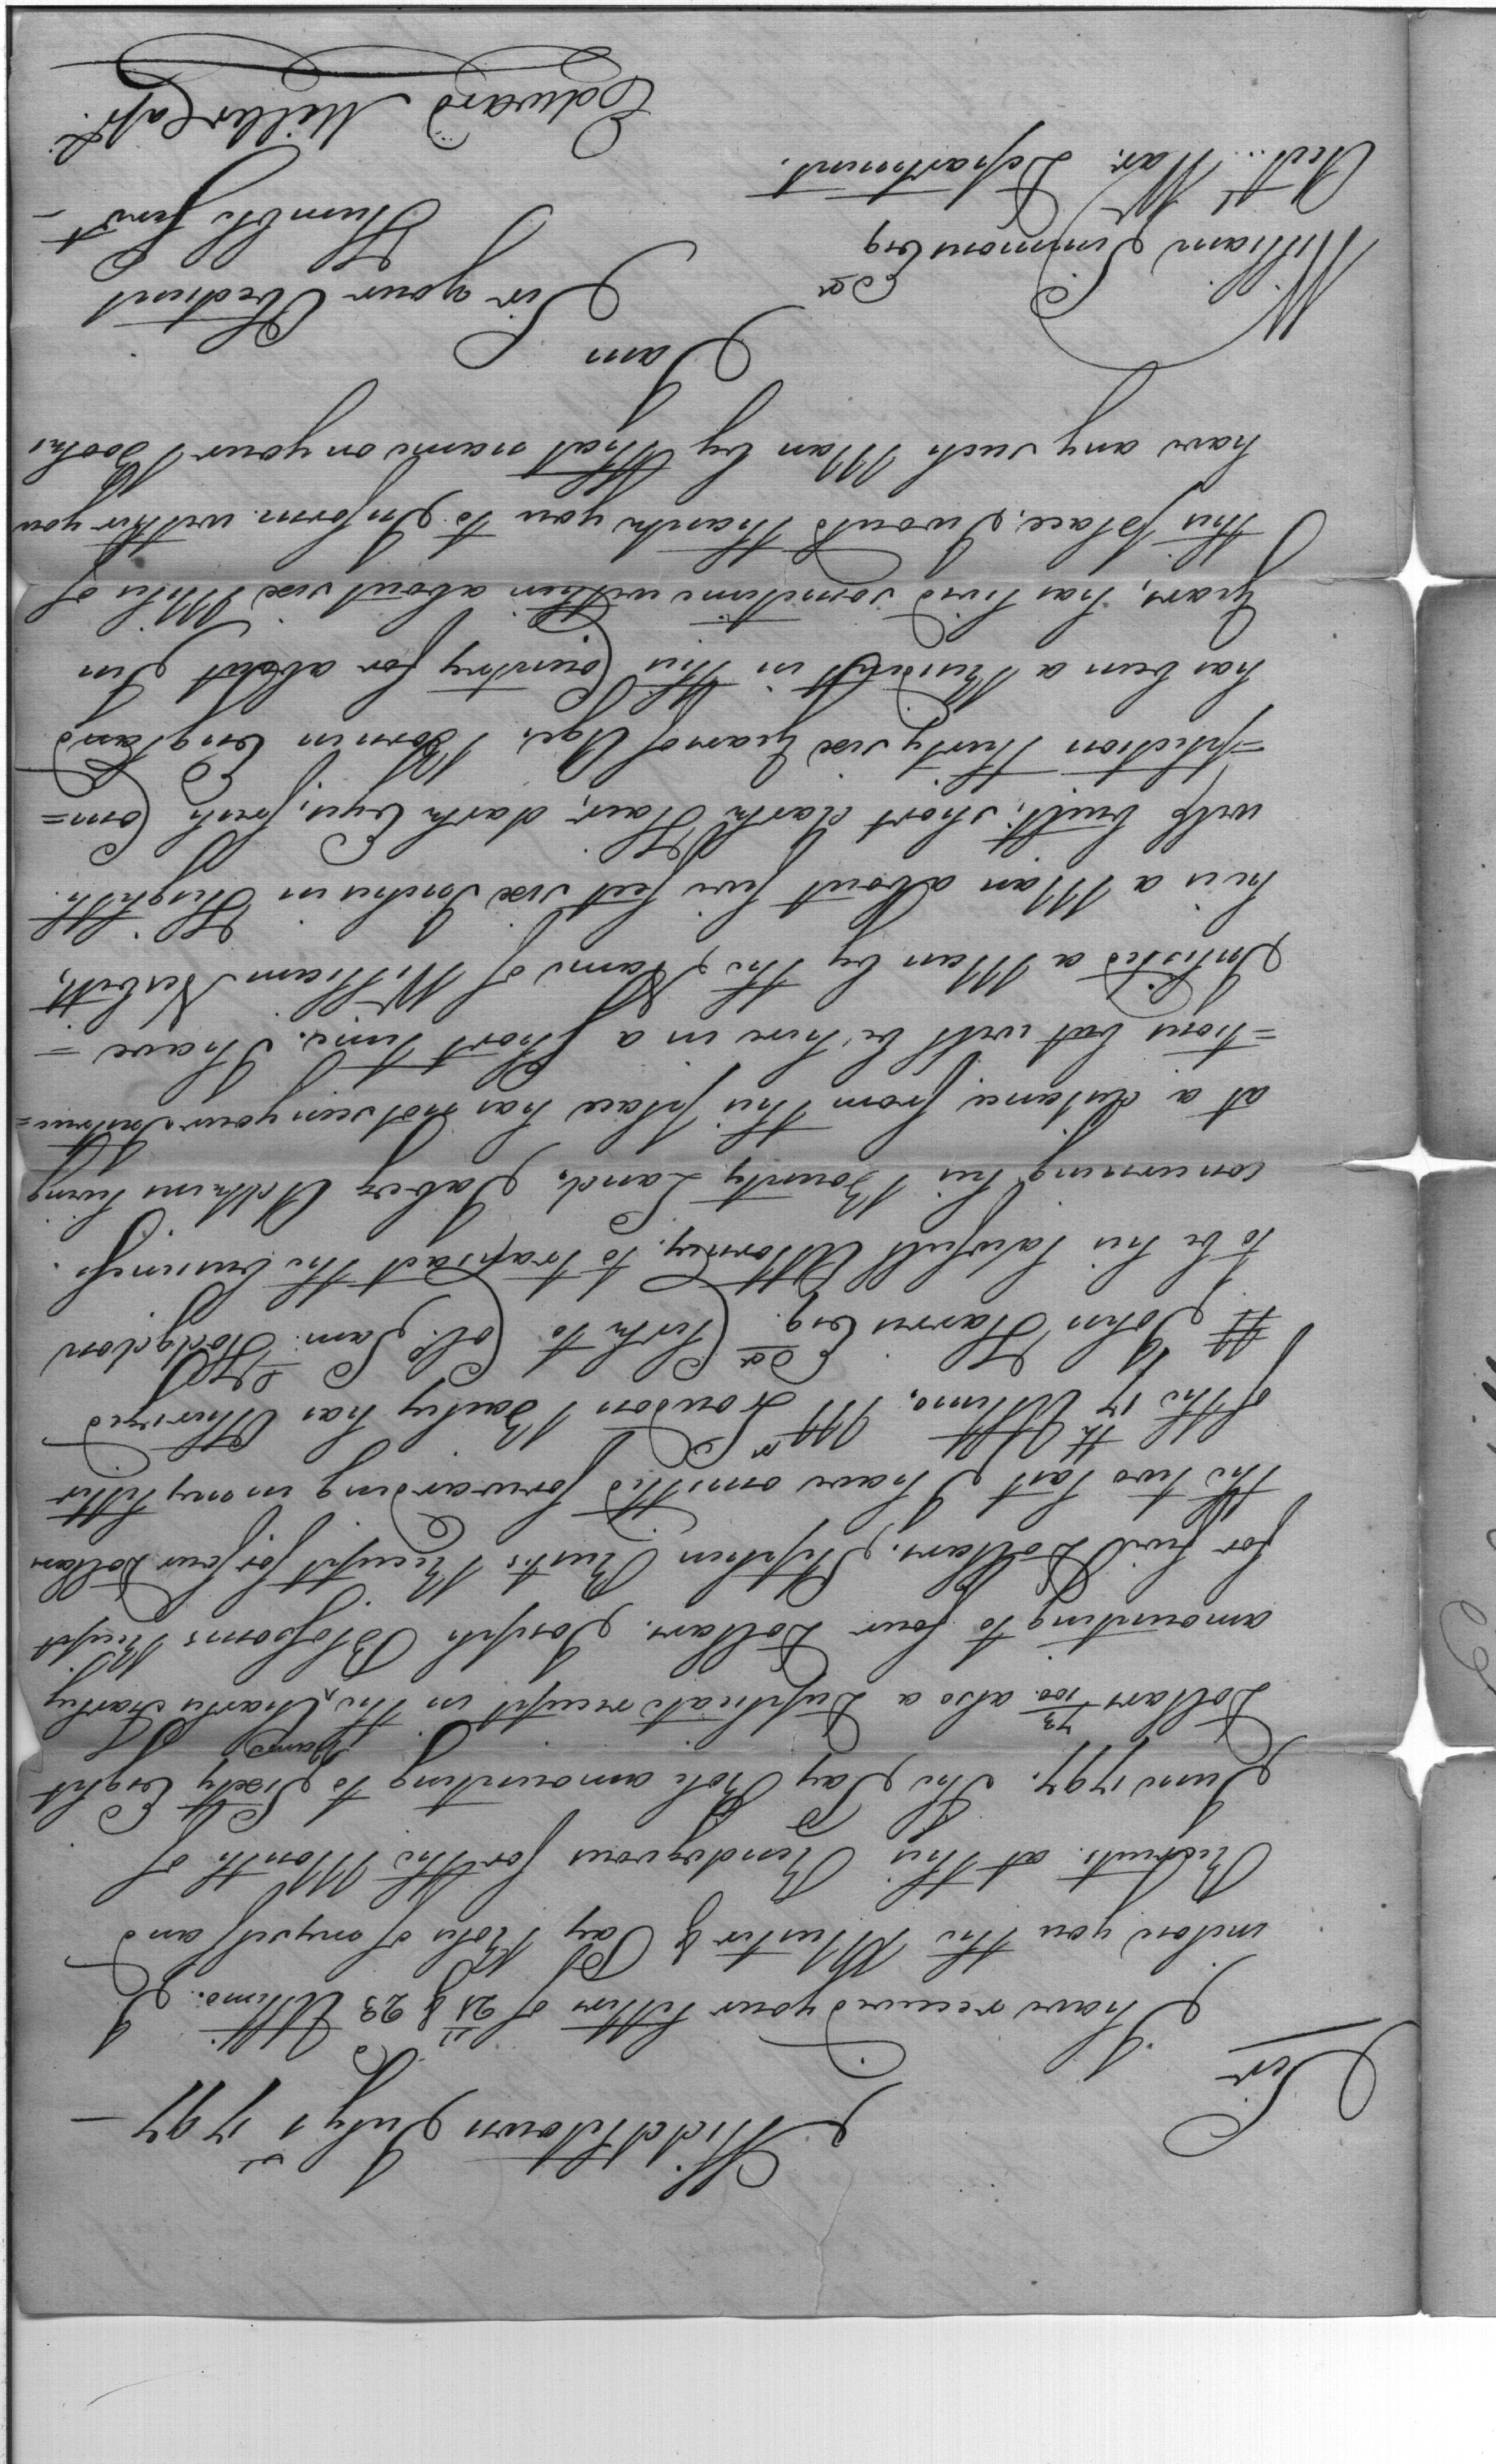 Middletown July 1st 1797 —
Sir
I have received your letters of 21st & 23d Ultimo. I
inclose you the Muster & Pay Rolls of myself and
Recruits at this Rendezvous for the Month of
June 1797. The Pay Role amounting to Sixty Eight
Dollars 73/100. also a Duplicate receipt in the name Charles
amounting to four Dollars. Joseph Blossoms Receipt
for five Dollars. Stephen Rusts Receipt for four Dollars
the two last I have omitted forwarding in my letter
of the 17th Ultimo. Mr Loudon Bailey has Athorized
John Harris Esqr. Clerk to Col. Sam. Hodgdon
to be his lawfull Attorney. to transact the business.
concerning his Bounty Land, Jabez Arthurs living
at a distance from this place has not seen your Instruc=
=tions but will be here in a short time. I have =
Inlisted a Man by the Name of William Nesbitt,
he is a Man about five feet six Inches in Heighth.
well built; short dark Hair, dark Eyes, fresh Com=
=plection thirty six Years of Age, Born in England
has been a Resident in this Country for about Ten
Years, has lived sometime within about six Miles of
this place, I would thank you to Inform wither you
have any such Man by that name on your Books
I am
Sir your Obedient
Humble Servt —
Edward Miller Capt.
William Simmons Esqr
Acct. War. Department.